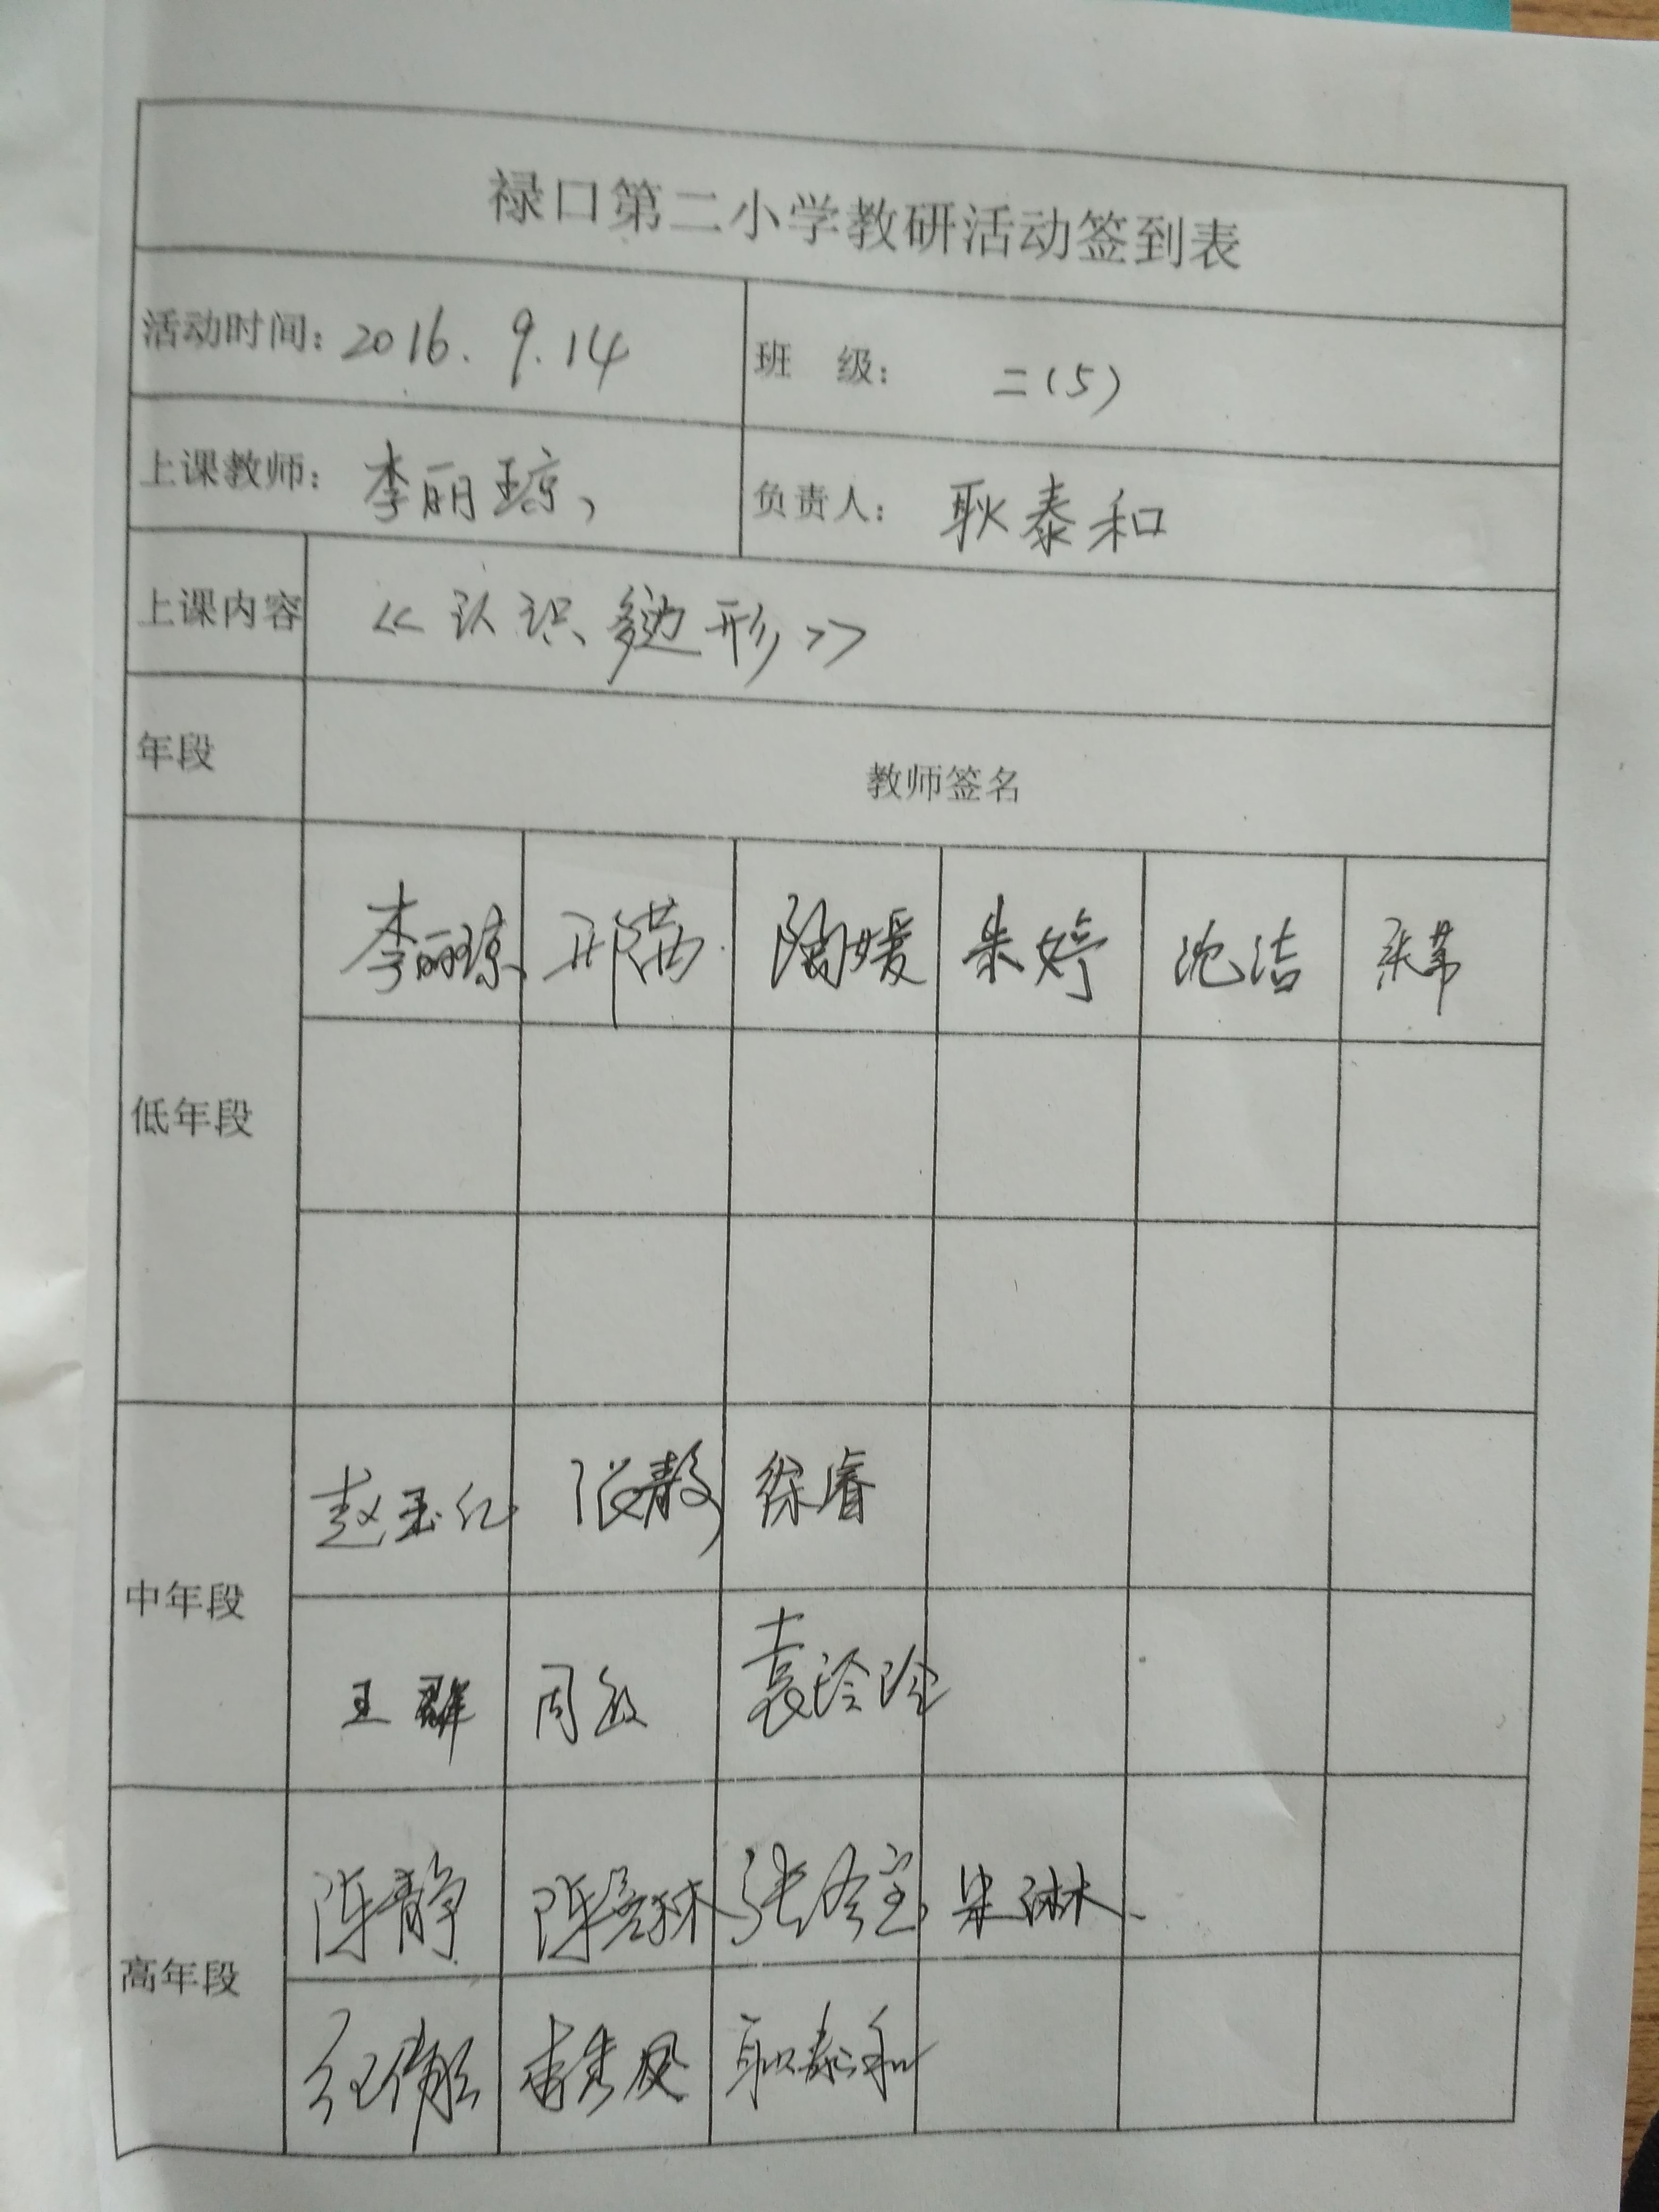 禄口第二小学教研活动签到表
活动时间：2016.9.14 班 级： 二（5）
上课教师：李丽琼、 负责人：耿泰和
上课内容 《认识多边形》
年段 教师签名
李丽琼 邢苗 陶媛 朱婷 沈洁
低年段
徐睿
中年段
王群 周敏 袁玲玲
陈静 朱淋
高年段
耿泰和